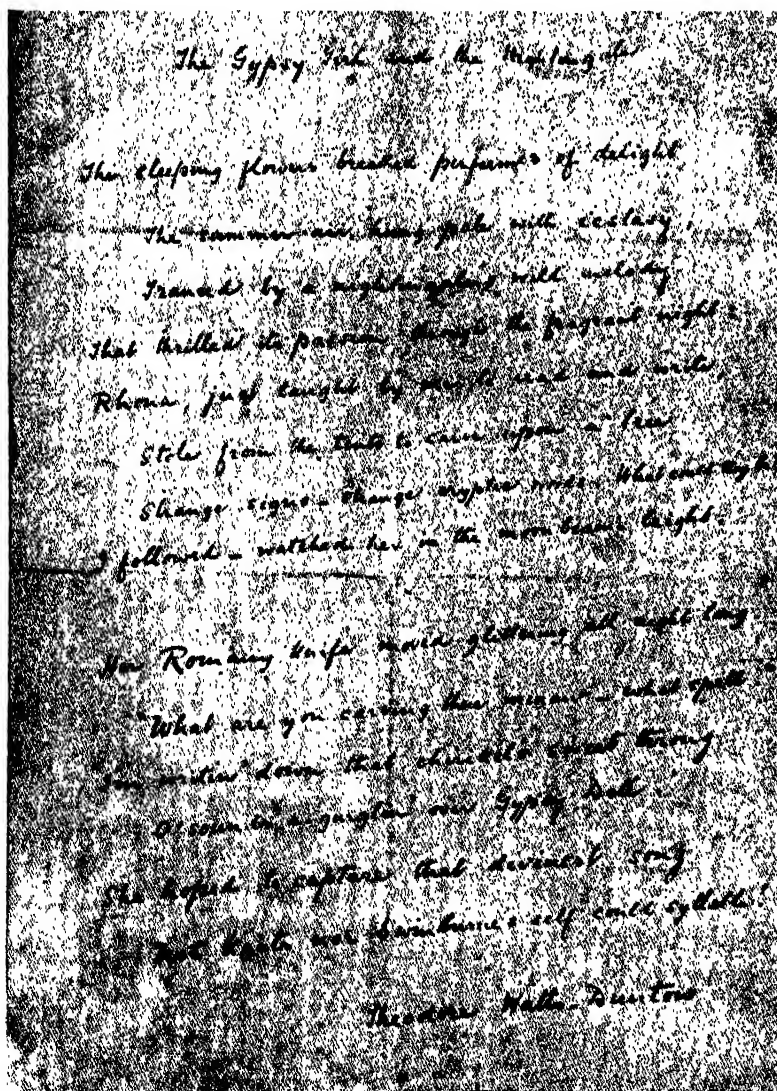 The Gypsy Girl and the Nightingale
The sleeping flowers breathed perfumes of delight,
The summer air hung pale with ecstasy,
Tranced by a nightingale's wild melody
That thrilled its passion through the fragrant night:
Rhona, just taught by me to read and write,
Stole from the tents to carve upon a tree
Strange signs – strange cryptic words. What could they be?
I followed – watched her in the moonbeams bright.
Her Romany knife moved glittering all night long,
"What are you carving there – what spell
"I'm writin' down that sweet throng
O' soun's over Gypsy Dell."
She hoped to capture that divinest song
Not Keats nor Swinburne's self could syllable!
Theodore Watts-Dunton